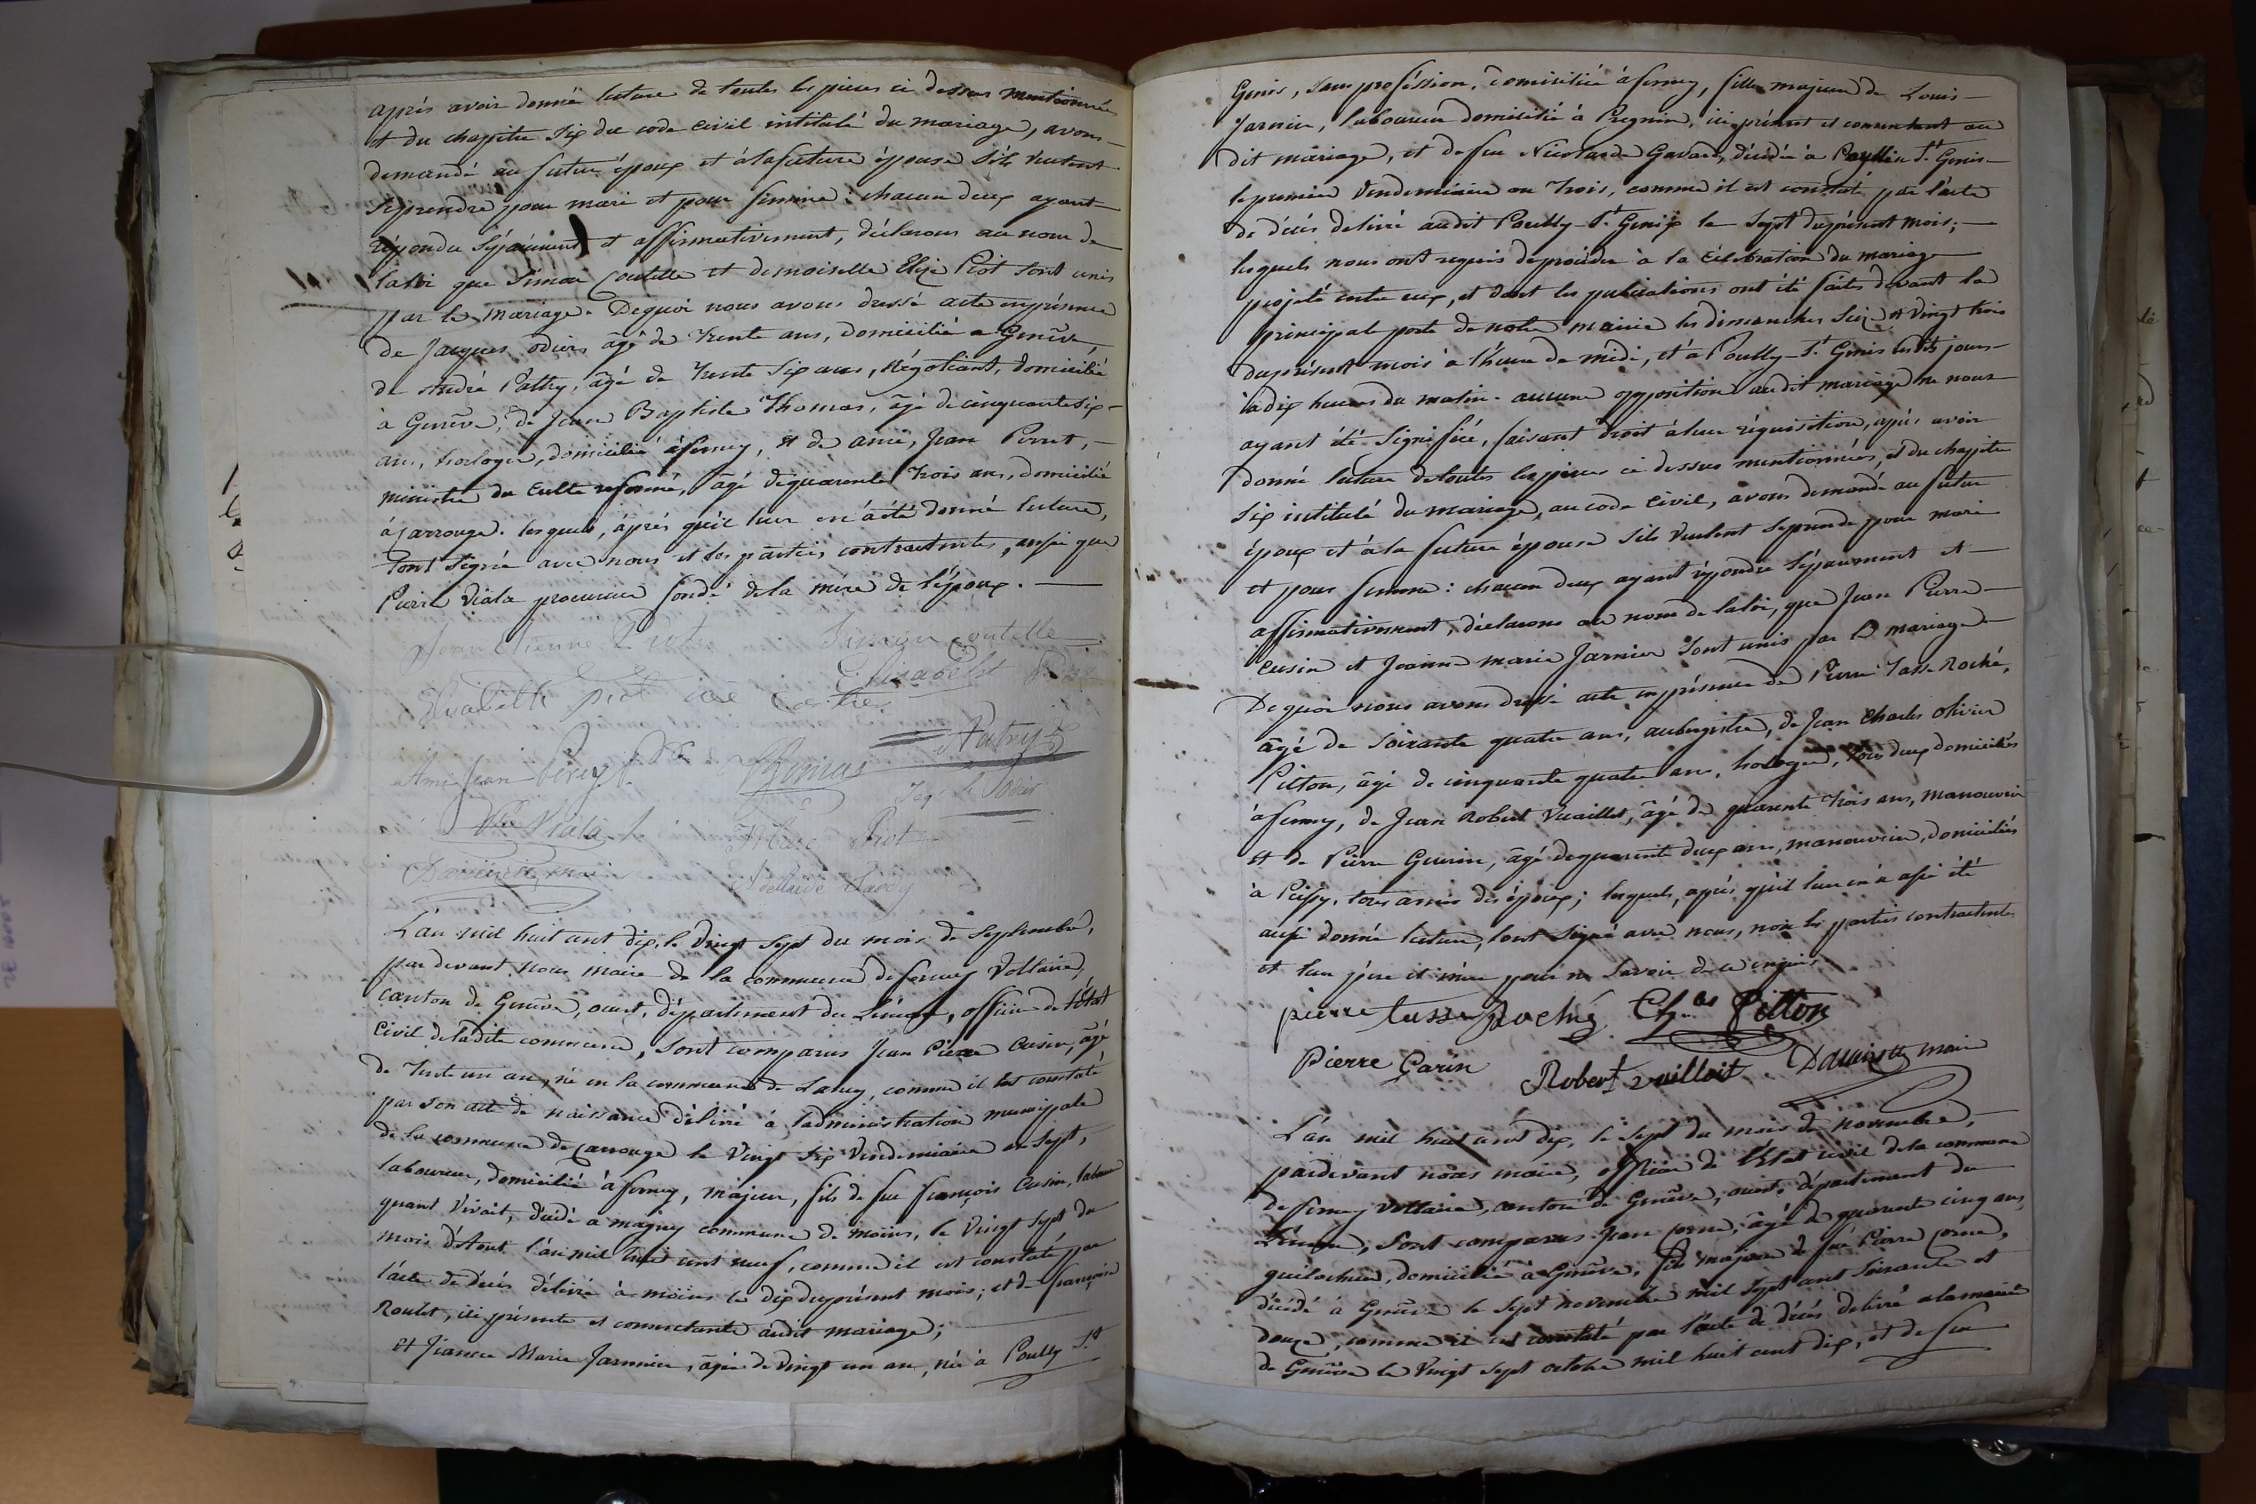 après avoir donné lecture de toutes les pieces ci dessus mentionnées
et du chapitre Six du code civil intitulé du mariage, avons
demandé au futur époux et à la future épouse s'ils veulent
se prendre pour mari et pour femme : chacun deux ayant
répondu séparément et affirmativement, déclarons au nom de
la loi que Simon Coutelle et demoiselle Elize Piot sont unis
par le mariage. De quoi nous avons dressé acte en présence
de Jacques odier, âgé de trente ans, domicilié a Genêve,
de André Pattry, âgé de trente six ans, Négotiant, domicilié
à Genêve, de Jean Baptiste Thomas, âgé de cinquante six
ans, horloger, domicilié à ferney, et de ami, Jean Perrot,
ministre du culte reformé, âgé de quarante trois ans, domicilié
à Carrouge. lesquels, après qu'il leur en a été donné lecture,
l'ont signé avec nous et les parties contractantes, ainsi que
Pierre Viala procureur fondé de la mère de l'époux.
Jean Etienne Piot Simon Coutelle
Elisabeth Piot
Elisabeth Piot née
Ami Jean Perrot Thomas A Patry
Odier
Viala Piot
maire Adelaide
L'an mil huit cent dix, le vingt sept du mois de septembre,
par devant nous maire de la commune de ferney Voltaire,
canton de Genêve, ouest, département du Léman, officier de l'état
Civil de ladite commune, sont comparus Jean Pierre Cusin, âgé
de trente un an, né en la commune de Lancy, comme il est constaté
par son acte de naissance délivré à l'administration municipale
de la commune de Carrouge le vingt six Vendemiaire an sept,
laboureur, domicilié à ferney, majeur, fils de feu françois Cusin,
quant vivait, décédé a magny commune de moëns, le vingt sept du
mois d'Aout l'an mil huit cent neuf, comme il est constaté par
l'acte de décès délivré à moëns le dix du présent mois; et de françoise
Roulet, ici présente et consentante audit mariage;
et Jeanne Marie Jarnier, âgée de vingt un an, née à Pouilly St
Genis, sans profession, domiciliée à ferney, fille majeure de Louis
Jarnier, laboureur domicilié à Pregnin, ici présent et consentant au
dit mariage, et de feu Nicolarde Gavard, décédée à Pouilly St Genis
le premier Vendemiaire an trois, comme il est constaté par l'acte
de décès delivré audit Pouilly St Genix le sept du présent mois;
lesquels nous ont requis de procéder à la célébration du mariage
projeté entre eux, et dont les publications ont été faites devant la
principale porte de notre mairie les dimanches seize et vingt trois
du présent mois à l'heure de midi, et à Pouilly St Genis lesdits jours
à dix heures du matin. aucune opposition audit mariage ne nous
ayant été signifiée, faisant droit à leur réquisition, après avoir
donné lecture de toutes les pieces ci dessus mentionnées, et du chapitre
Six intitulé du mariage, au code civil, avons demandé au futur
époux et à la future épouse s'ils veulent se prendre pour mari
et pour femme : chacun deux ayant répondu séparément et
affirmativement, déclarons au nom de la loi, que Jean Pierre
Cusin et Jeanne marie Jarnier sont unis par le mariage.
De quoi nous avons dressé acte en présence de Pierre Tasse Roché,
âgé de soixante quatre ans, aubergiste, de Jean Charles olivier
Pitton, âgé de cinquante quatre ans, horloger, tous deux domiciliés
à ferney, de Jean Robert Vuaillet, âgé de quarante trois ans, manouvrier
et de Pierre Guerin, âgé de quarante deux ans, manouvrier, domiciliés
à tous amis des époux; lesquels, après qu'il leur en a
aussi donné lecture, l'ont signé avec nous, non les parties contractantes
et leur père et mère pour ne savoir de ce enquis.
pierre tasse Roché Ch.les Pitton
Pierre Garin Robert vuilloit maire
L'an mil huit cent dix, le sept du mois de novembre,
pardevant nous maire, officier de l'Etat civil de la commune
de ferney voltaire, canton de Genêve, ouest, département du
Léman, sont comparus Jean âgé de quarante cinq ans,
guilocheur, domicilié à Genêve, fils majeur de feu Pierre
décédé à Genêve le sept novembre mil sept cent soixante et
douze, comme il est constaté par l'acte de décès delivré a la mairie
de Genêve le vingt sept octobre mil huit cent dix, et de feu